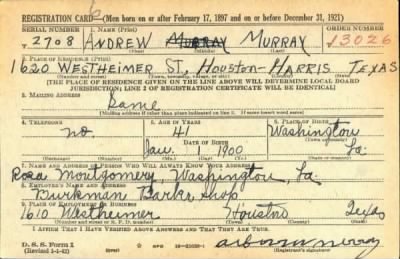 REGISTRATION CARD—(Men born on or after February 17, 1897 and on or before December 31, 1921)
SERIAL NUMBER 1. NAME (Print) ORDER NUMBER
2708 ANDREW MURRAY MURRAY 13026
2. PLACE OF RESIDENCE (Print)
1620 WESTHEIMER ST. HOUSTON - HARRIS TEXAS
(Number and street) (Town, township, village, or city) (County) (State)
[THE PLACE OF RESIDENCE GIVEN ON THE LINE ABOVE WILL DETERMINE LOCAL BOARD
JURISDICTION; LINE 2 OF REGISTRATION CERTIFICATE WILL BE IDENTICAL]
3. MAILING ADDRESS
Same
(Mailing address if other than place indicated on line 2. If same insert word same)
4. TELEPHONE 5. AGE IN YEARS 6. PLACE OF BIRTH
no. 41 Washington
DATE OF BIRTH (Town or county)
Jan. 1 1900 La.
(Exchange) (Number) (Mo.) (Day) (Yr.) (State or country)
7. NAME AND ADDRESS OF PERSON WHO WILL ALWAYS KNOW YOUR ADDRESS
Rosa Montgomery, Washington, La.
8. EMPLOYER'S NAME AND ADDRESS
Burkman Barber Shop
9. PLACE OF EMPLOYMENT OR BUSINESS
1610 Westheimer Houston Texas
(Number and street or R. F. D. number) (Town) (County) (State)
I AFFIRM THAT I HAVE VERIFIED ABOVE ANSWERS AND THAT THEY ARE TRUE.
D. S. S. Form 1
(Revised 1-1-42) (over) (Registrant's signature)